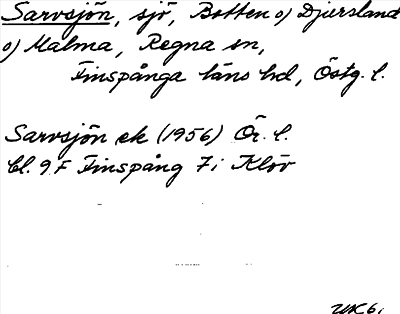 Sarvsjön, sjö, Botten o) Djursland
o) Malma, Regna sn,
Finspånga läns hd, Östg. l.
Sarvsjön ek (1956) Ör. l.
bl. 9F Finspång 7i Klöv